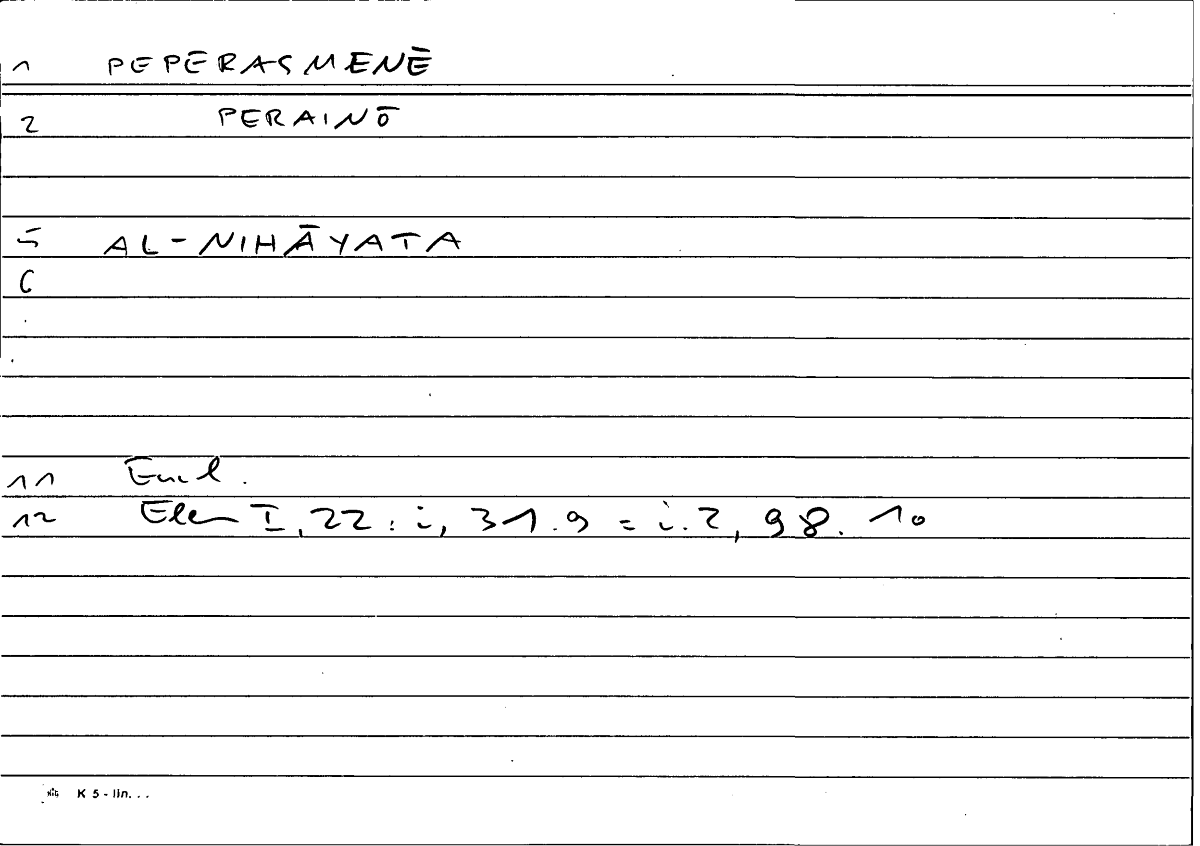 1 PEPERASMENĒ
2 PERAINŌ
5 AL-NIHĀYATA
6
11 Eucl.
12 Elem I, 22 : i, 31.9 = i.2, 98.10
K 5 - lin. . .